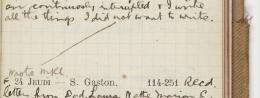 am continuously interrupted & I write
all the things I did not want to write.
Wrote M.K.
F 24 JEUDI — S. Gaston. 114-251 Recd.
letter from Dad, Laura, Marion E.